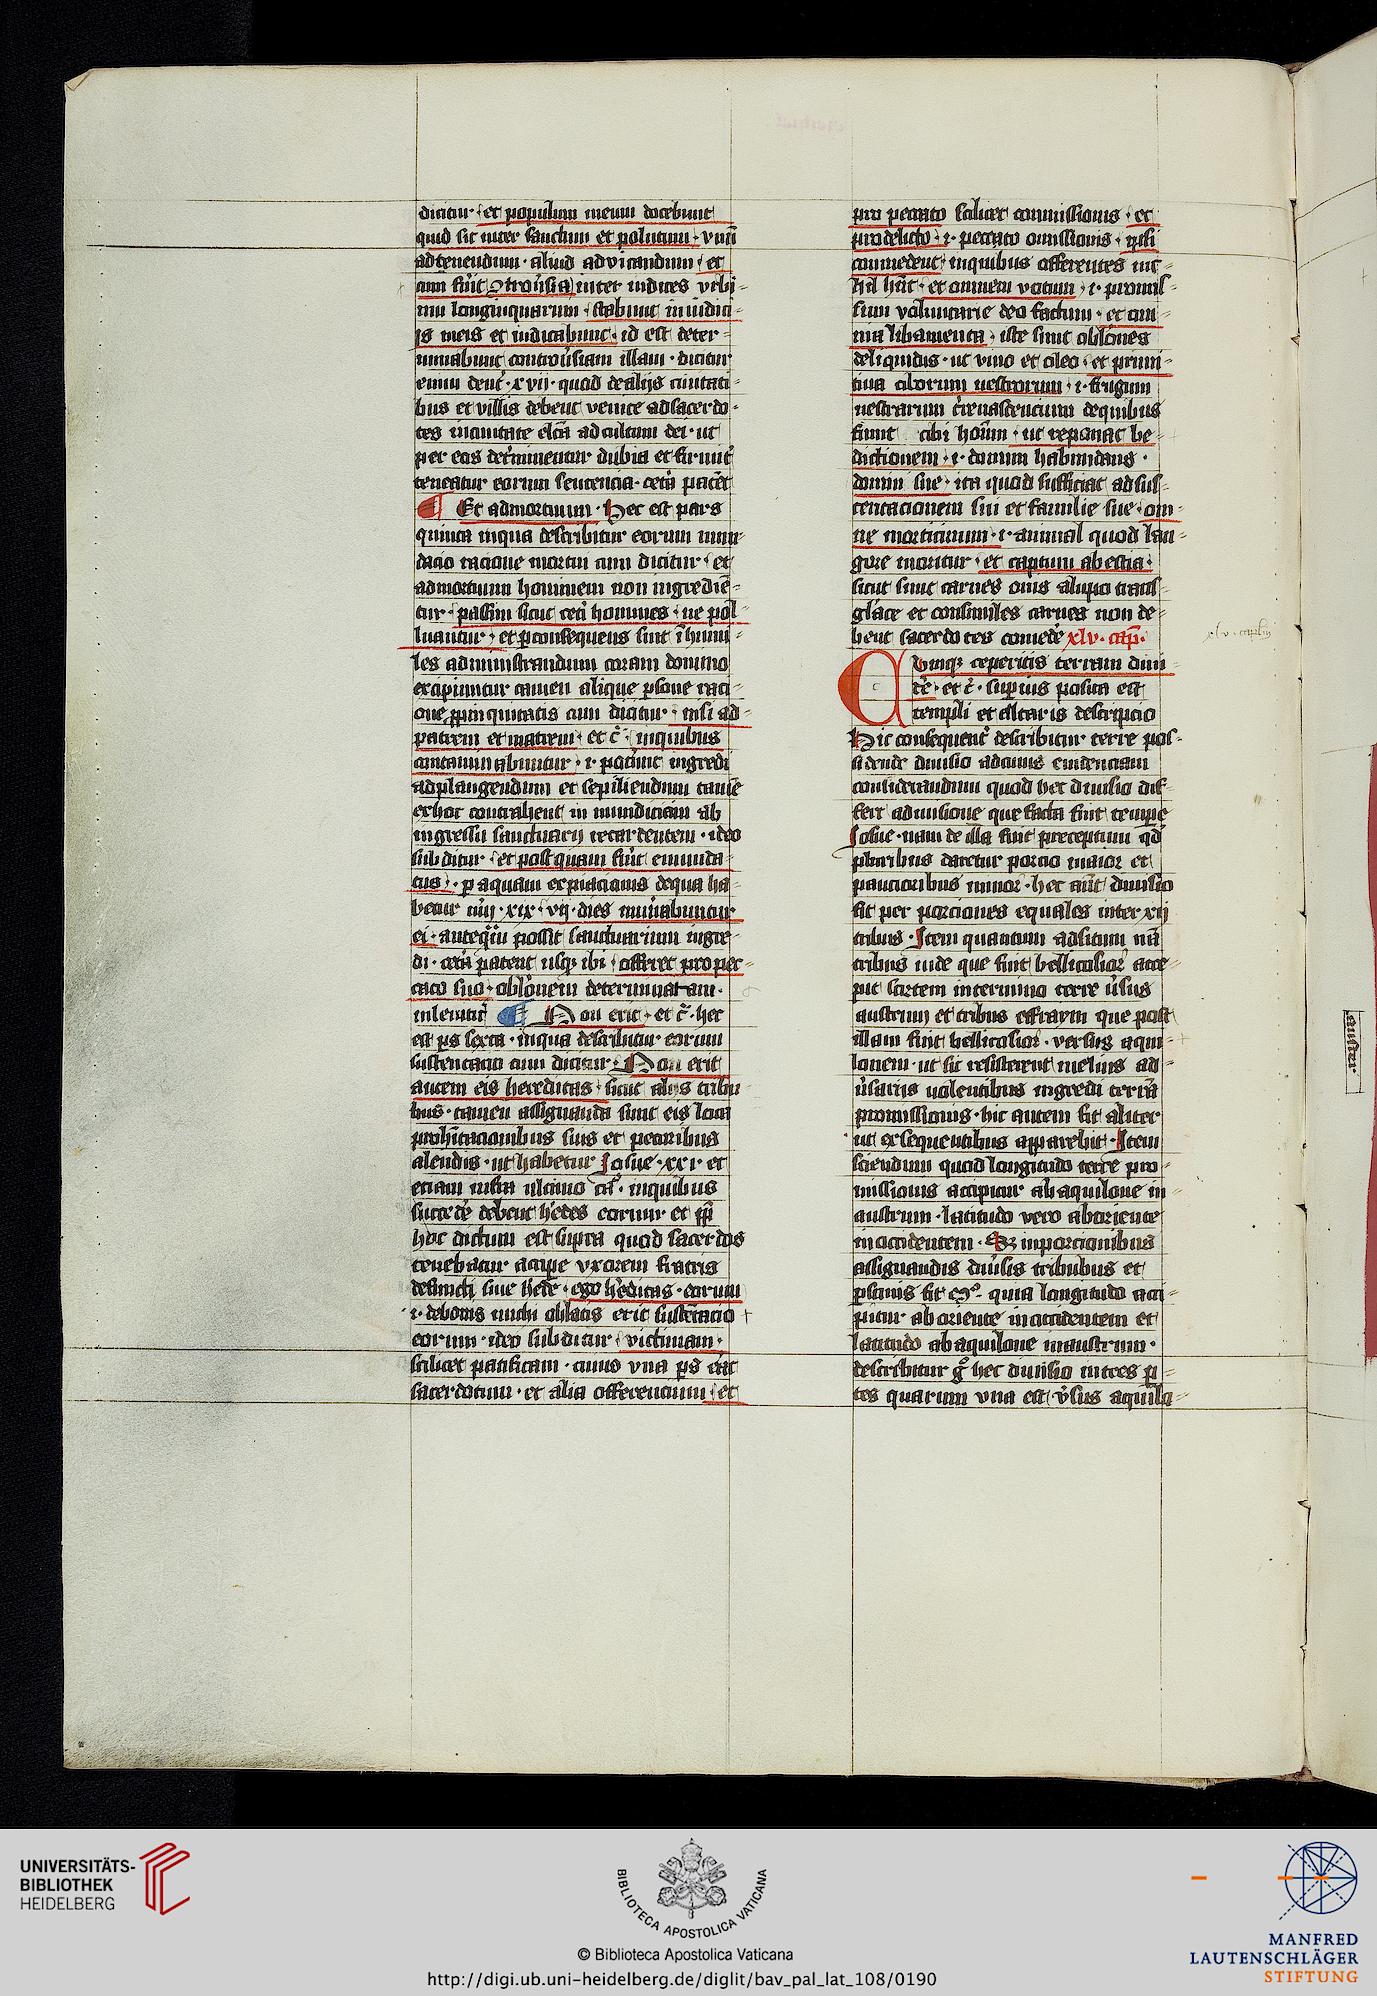 dicitur · et populum meum docebunt
quid sit inter sanctum et polutum · vnū
ad tenendum · aliud ad vitandum · et
cum fūit ꝯtrouͥsia inter iudices vrbi=
um longinquarum · stabunt in iudici=
is meis et iudicabunt · id est deter=
minabunt controuͥsiam illam · dicitur
enim deut͛ · xvii · quod de alijs ciuitati=
bus et villis debent venire ad sacerdo=
tes in ciuitate elc̄a ad cultum dei · ut
per eos det͛minentur dubia et firmit͛
teneatur eorum sentencia · cet͛a patēt
¶ Et ad mortuum · Hec est pars
quinta in qua describitur eorum mun=
dacio racione mortui cum dicitur · et
ad mortuum hominem non ingrediē=
tur · passim sicut cet͛i homines · ne pol=
luantur · et ꝑ consequens sint īhumi=
les administrandum coram domino
excipiuntur tamen alique ꝑsone raci=
one ꝓpinquitatis cum dicitur · nisi ad=
patrem et matrem · et c̄ · in quibus
contaminabuntur · i · potūnt ingredi
ad plangendum et sepiliendum tamē
ex hoc contrahent in mundiciam ab
ingressu sanctuarij retardentem · ideo
subditur · et post quam fūit emunda=
tus · ꝑ aquam expiacionis de qua ha=
betur nūi · xix · vij · dies nūm̄abuntur
ei · anteq̄m possit sanctuarium ingre=
di · cet͛a patent usqꝫ ibi · offeret pro pec=
cato suo · obloͨnem determinatam ·
inleuitit͛ ¶ Non erit · et c̄ · hec
est ꝑs sexta · in qua describitur eorum
sustentacio cum dicitur · Non erit
autem eis hereditas · sicut alijs tribu
bus · tamen assignanda sunt eis loca
ꝓ habitacionibus suis et pecoribus
alendis · ut habetur Josue · xxi · et
etiam infra ultimo ca · in quibus
succede͛ debent he͛des eorum et ꝓꝑ
hoc dictum est supra quod sacerdos
tenebatur accipe͛ vxorem fratris
defuncti sine he͛de · ego he͛ditas · eorum
i · de bonis michi oblatis erit sustētacio
eorum · ideo subditur · victimam ·
scilicet pacificam · cuius vna ꝑs e͛at
sacerdotum · et alia offerencium · et
pro peccato scilicet commissionis · et
pro delicto · i · peccato omissionis · ipsi
commedent · in quibus offerentes nic=
hil hn̄t · et omnem votum · i · promis=
sum voluntarie deo factum · et om=
nia libamenta · iste sunt oblōnes
de liquidis · ut vino et oleo · et primi=
tiua ciborum uestrorum · i · frugum
uestrarum t͛renascencium de quibus
fiunt cibi hoīm · ut reponat be=
dictionem · i · donum habundans ·
domui sue · ita quod sufficiat ad sus=
tentacionem sui et familie sue · om=
ne morticinum · i · animal quod lan=
gore moritur · et captum a bestia ·
sicut sunt carnes ouis a lupo trans=
glate et consimiles carnes non de=
bent sacerdotes comede͛ xlv · cap̄ ·
xlv · capl̄m
CUmqꝫ ceperitis terram diui=
de͛ · et c̄ · superius posita est
templi et altaris descripcio
Hic consequent͛ describitur terre pos=
sidende diuisio ad cuius euidenciam
considerandum quod hec diuisio dif=
fert a diuisione que facta fuit tempore
Josue · nam de illa fuit preceptum qd̄
pluribus daretur porcio maior et
paucioribus minor · hec aūt diuisio
fit per porciones equales inter xij
tribus · Item quantum ad situm nā
tribus iude que fuit bellicosior acce=
pit sortem in termino terre uͥsus
austrum et tribus effraym que post
illam fuit bellicosior · versus aqui=
lonem · ut sic resisterent melius ad=
uͥsarijs uolentibus ingredi terrā
promissionis · hic autem fit aliter
ut ex sequentibus apparebit · Item
sciendum quod longitudo terre pro=
missionis accipitur ab aquilone in=
austrum · latitudo vero ab oriente
in occidentem · Sꝫ in porcionibus
assignandis diuͥsis tribubus et
ꝑsonis fit eͦ9 · quia longitudo acci=
pitur ab oriente in occidentem et
latitudo ab aquilone in austrum ·
describitur gͦ hec diuisio in tres ꝑ=
tes quarum vna est vͥsus aquilo=
auster
UNIVERSITÄTS-
BIBLIOTHEK
HEIDELBERG
BIBLIOTECA APOSTOLICA VATICANA
© Biblioteca Apostolica Vaticana
http://digi.ub.uni-heidelberg.de/diglit/bav_pal_lat_108/0190
MANFRED
LAUTENSCHLÄGER
STIFTUNG